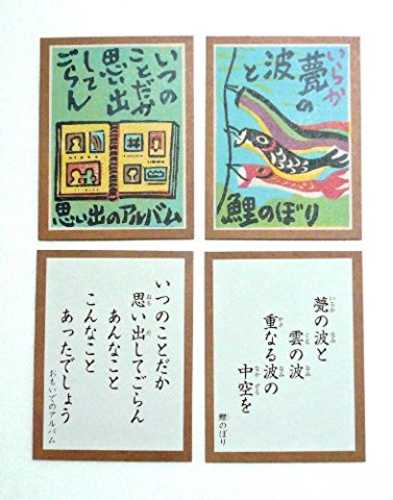 いつの
ことだか
思い出
して
ごらん
思い出のアルバム
いらか
甍の
波
と
鯉のぼり
いつのことだか
思い出してごらん
あんなこと
こんなこと
あったでしょう
おもいでのアルバム
甍の波と
雲の波
重なる波の
中空を
鯉のぼり